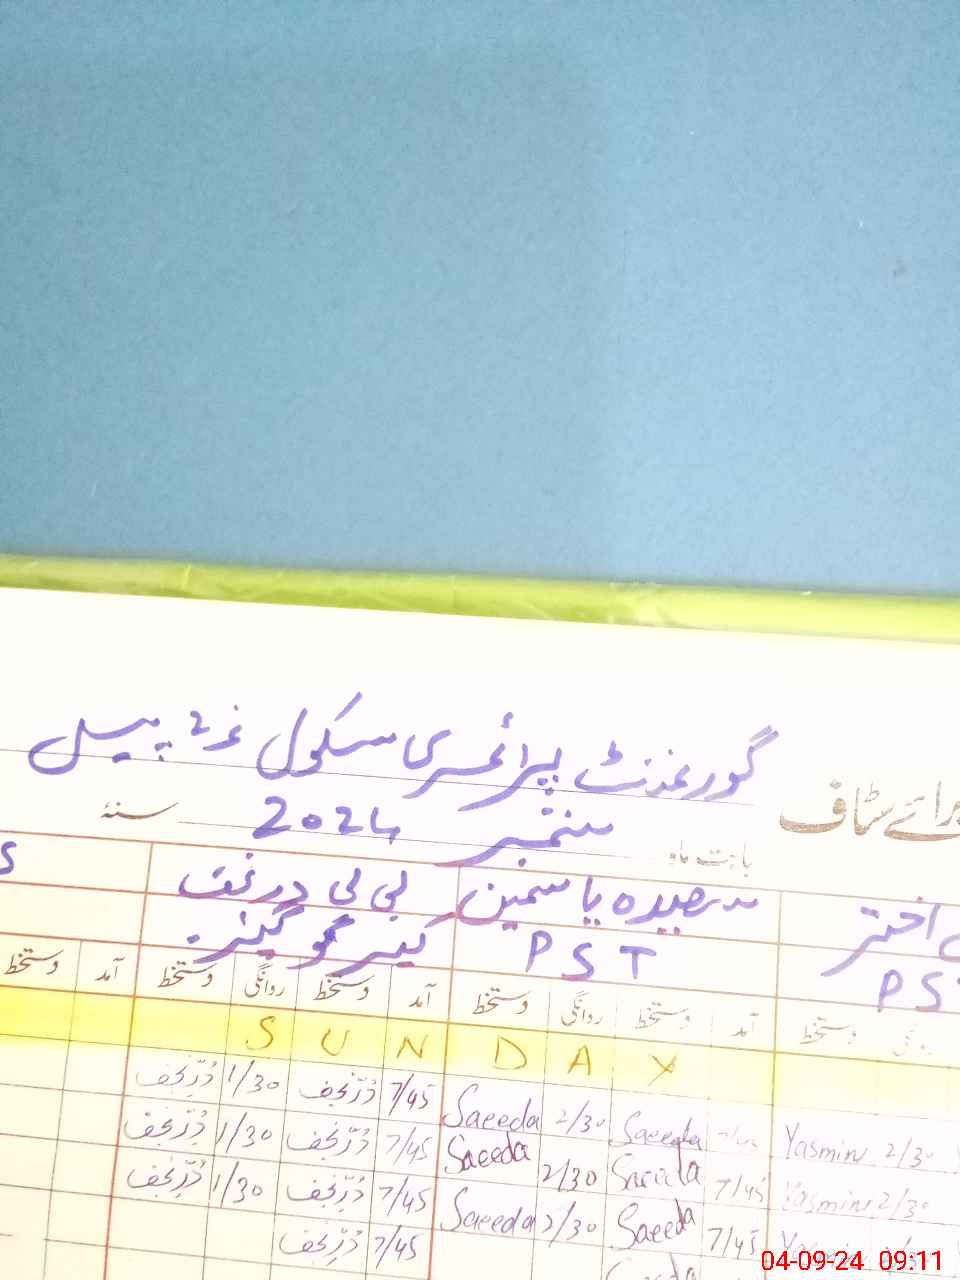 گورنمنٹ پرائمری سکول نمبر2 پیسل
برائے سٹاف
بابت ماہ ستمبر 2024 سنہ
اختر سعیدہ یاسمین بی بی در نجف
PS PST کیئر گیور
دستخط آمد دستخط روانگی دستخط آمد دستخط روانگی دستخط آمد دستخط
S U N D A Y
دُرِّنجف 1/30 دُرِّنجف 7/45 Saeeda 2/30 Saeeda 7/45 Yasmin 2/30
دُرِّنجف 1/30 دُرِّنجف 7/45 Saeeda 2/30 Saeeda 7/45 Yasmin 2/30
دُرِّنجف 1/30 دُرِّنجف 7/45 Saeeda 2/30 Saeeda 7/45 Yasmin
دُرِّنجف 7/45
04-09-24 09:11